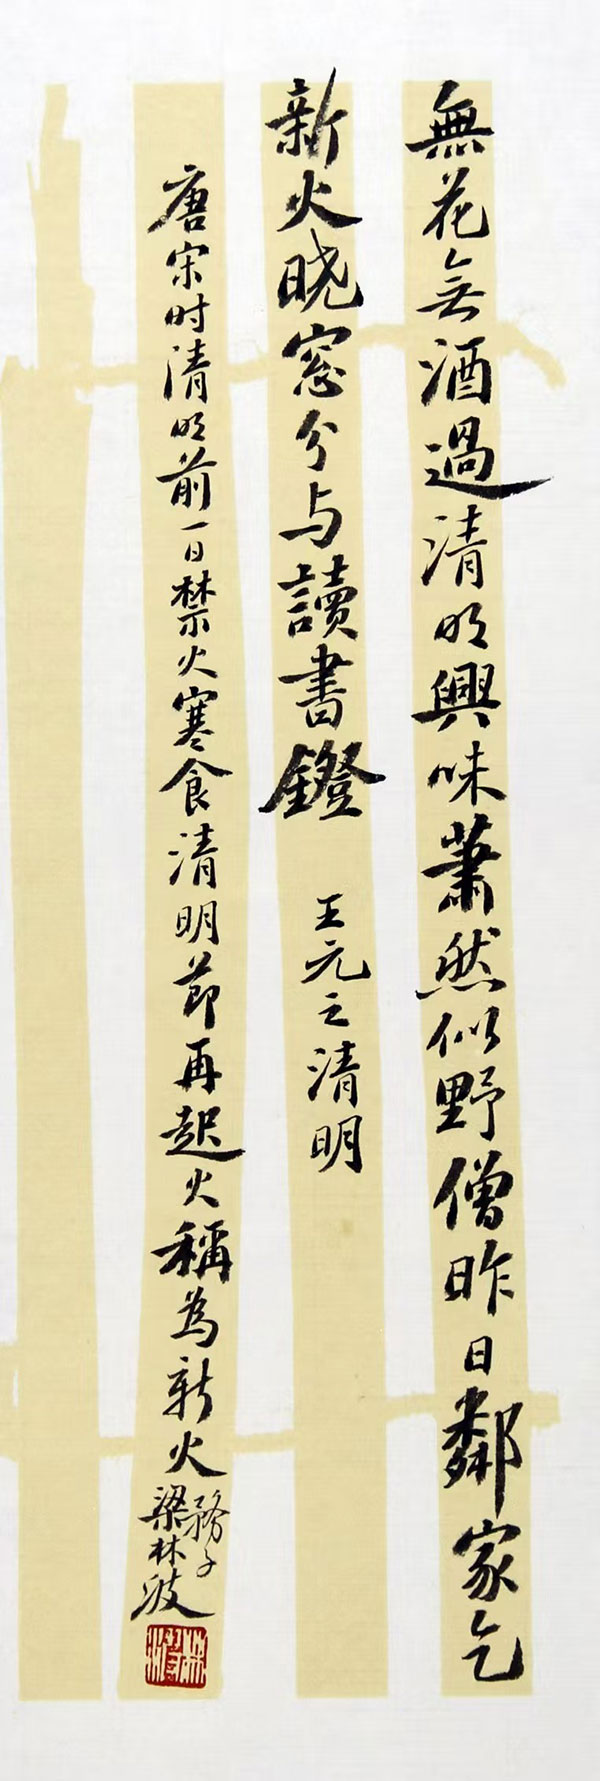 無花無酒過清明興味蕭然似野僧昨日鄰家乞
新火晓窓分与讀書鐙 王元之清明
唐宋时清明前一日禁火寒食清明节再起火稱為新火
梁林波